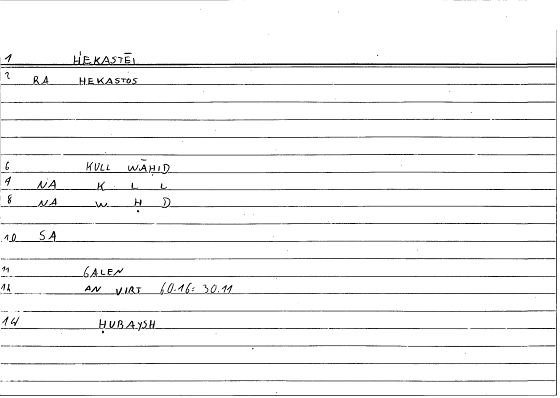 1 HEKASTĒI
2 RA HEKASTOS
6 KULL WĀḤID
7 NA K L L
8 NA W Ḥ D
10 SA
11 GALEN
12 AN VIRT 60.16= 30.11
14 ḤUBAYSH